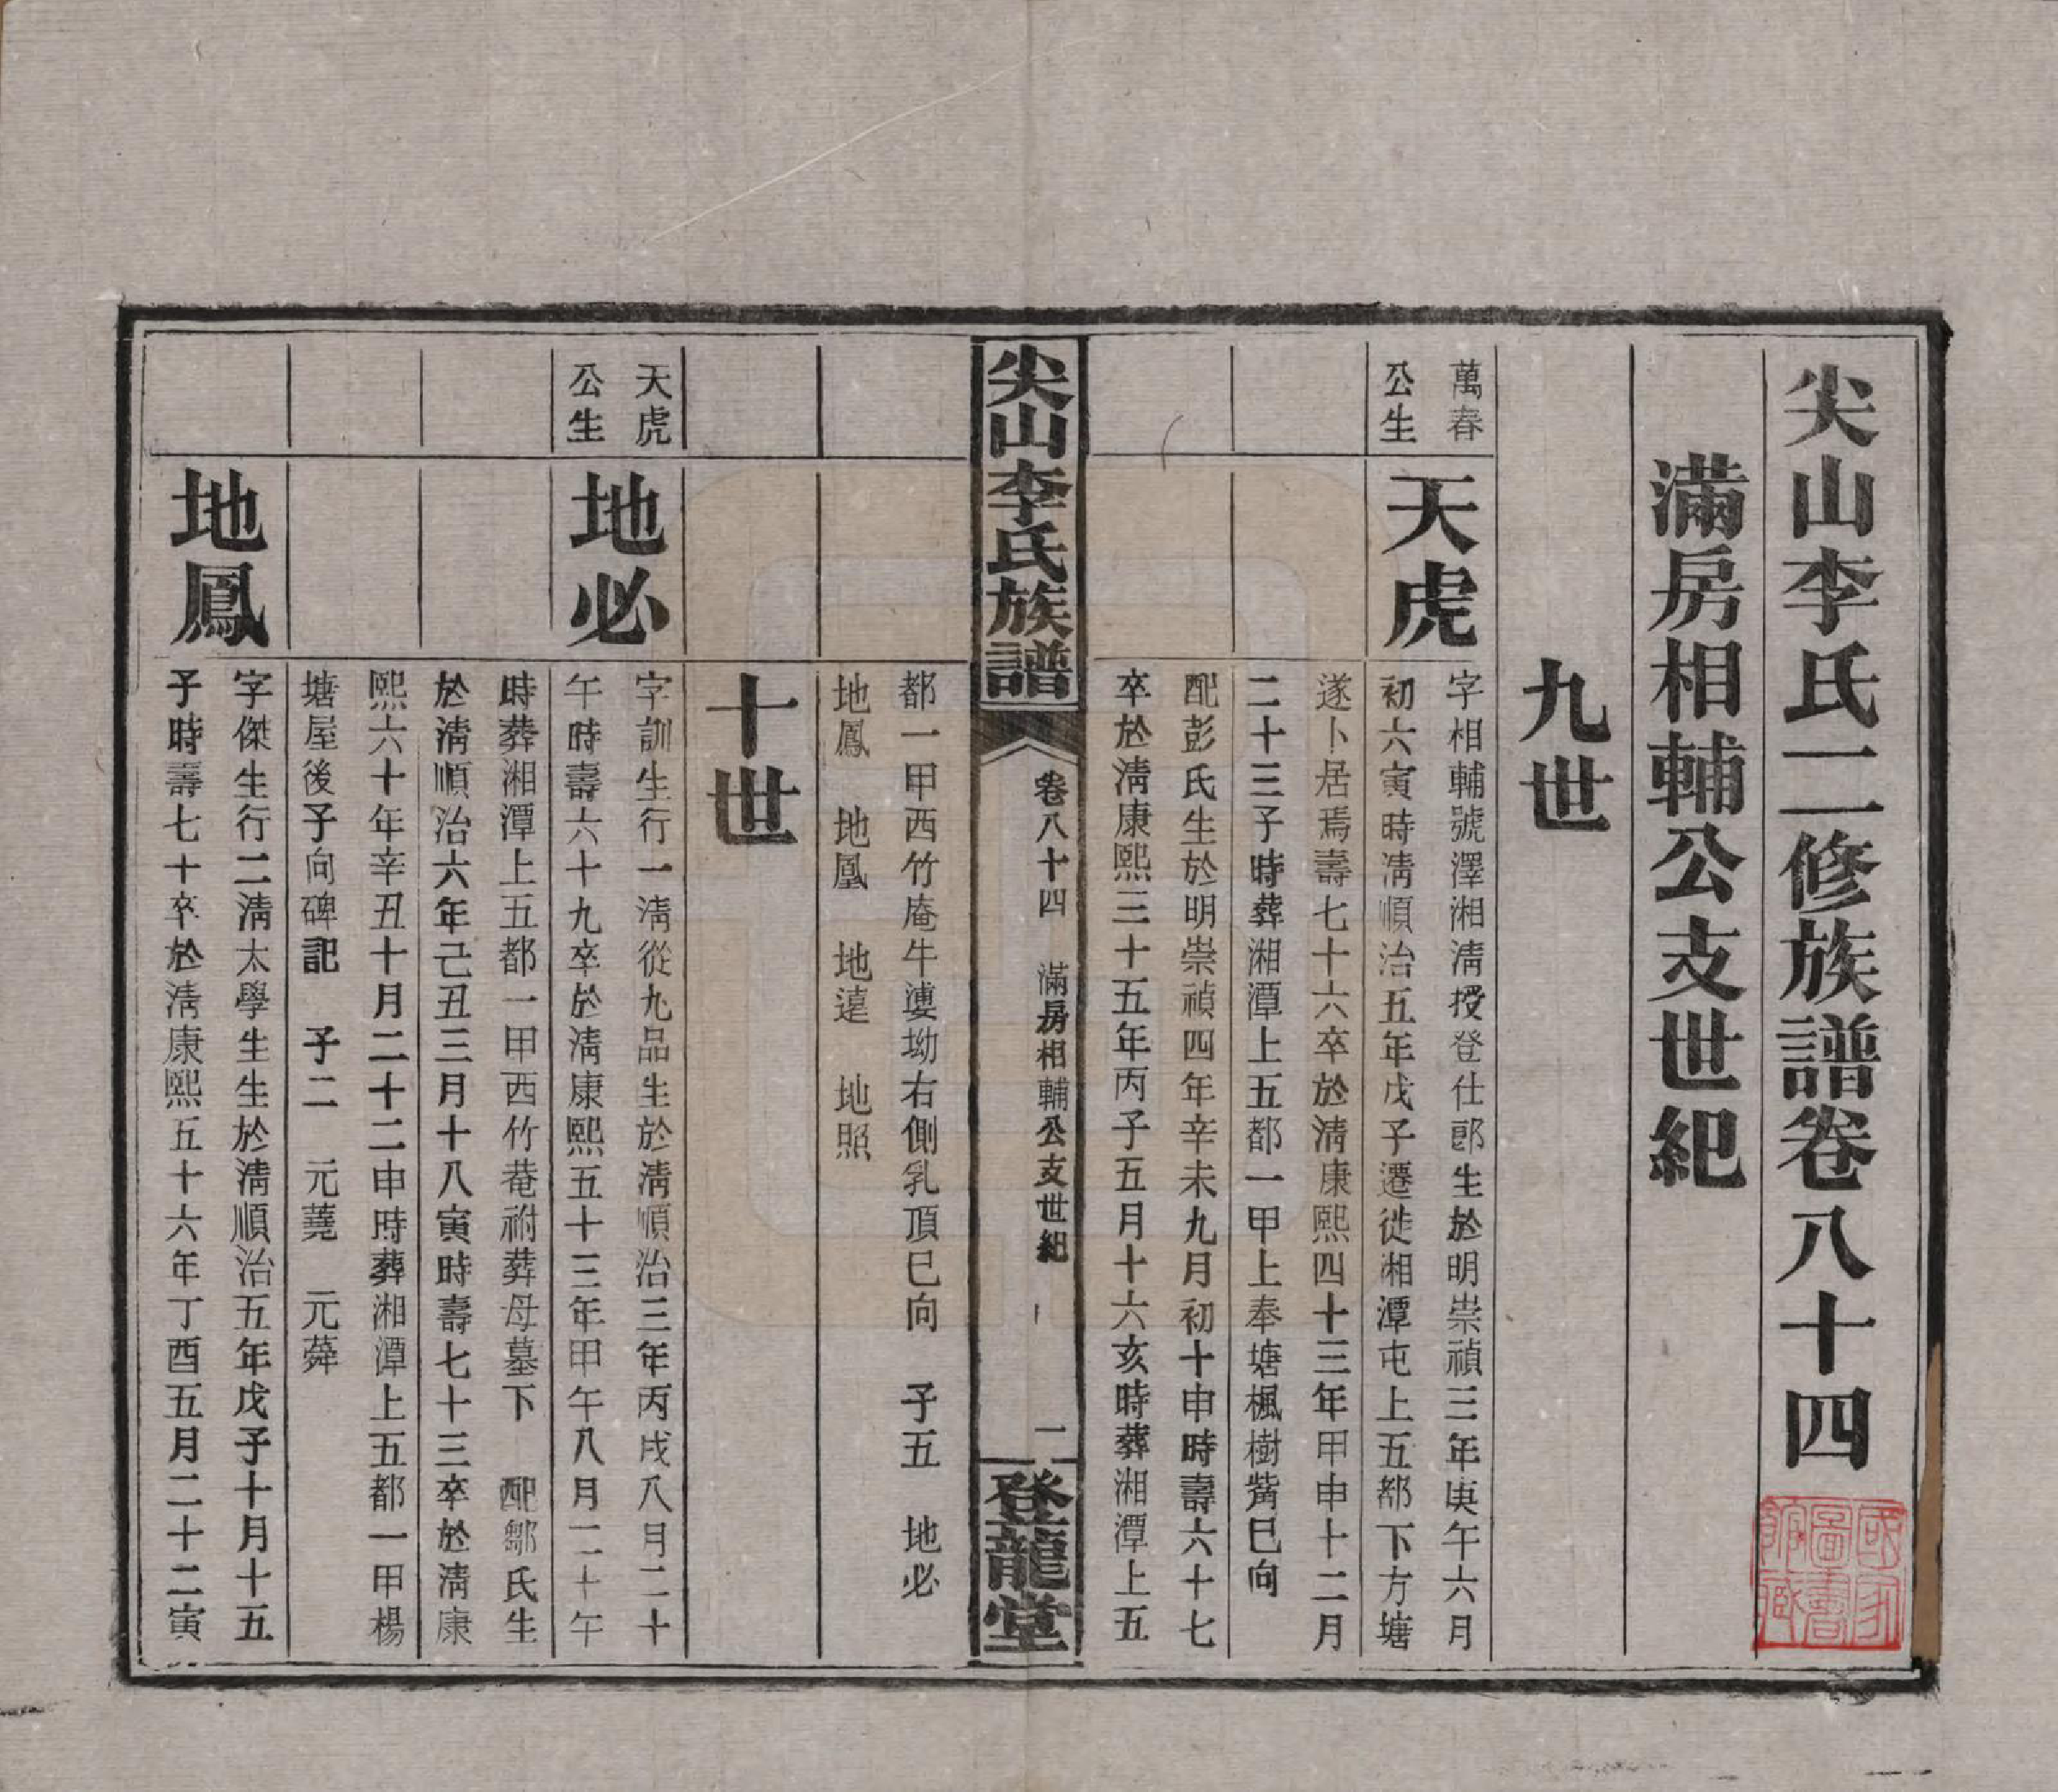 尖山李氏二修族譜卷八十四
滿房相輔公支世紀
九世
萬春
公生
天虎
字相輔號澤湘淸授登仕郎生於明崇禎三年庚午六月
初六寅時淸順治五年戊子遷徙湘潭屯上五都下方塘
遂卜居焉壽七十六卒於淸康熙四十三年甲申十二月
二十三子時葬湘潭上五都一甲上奉塘楓樹觜巳向
配彭氏生於明崇禎四年辛未九月初十申時壽六十七
卒於淸康熙三十五年丙子五月十六亥時葬湘潭上五
尖山李氏族譜
卷八十四 滿房相輔公支世紀
一
登龍堂
都一甲西竹庵牛婆坳右側乳頂巳向 子五 地必
地鳳 地凰 地遠 地照
十世
天虎
公生
地必
字訓生行一淸從九品生於淸順治三年丙戌八月二十
午時壽六十九卒於淸康熙五十三年甲午八月二十午
時葬湘潭上五都一甲西竹菴祔葬母墓下 配鄒氏生
於淸順治六年己丑三月十八寅時壽七十三卒於淸康
熙六十年辛丑十月二十二申時葬湘潭上五都一甲楊
塘屋後子向碑記 子二 元蕘 元蕣
地鳳
字傑生行二淸太學生生於淸順治五年戊子十月十五
子時壽七十卒於淸康熙五十六年丁酉五月二十二寅
國家
圖書
館藏